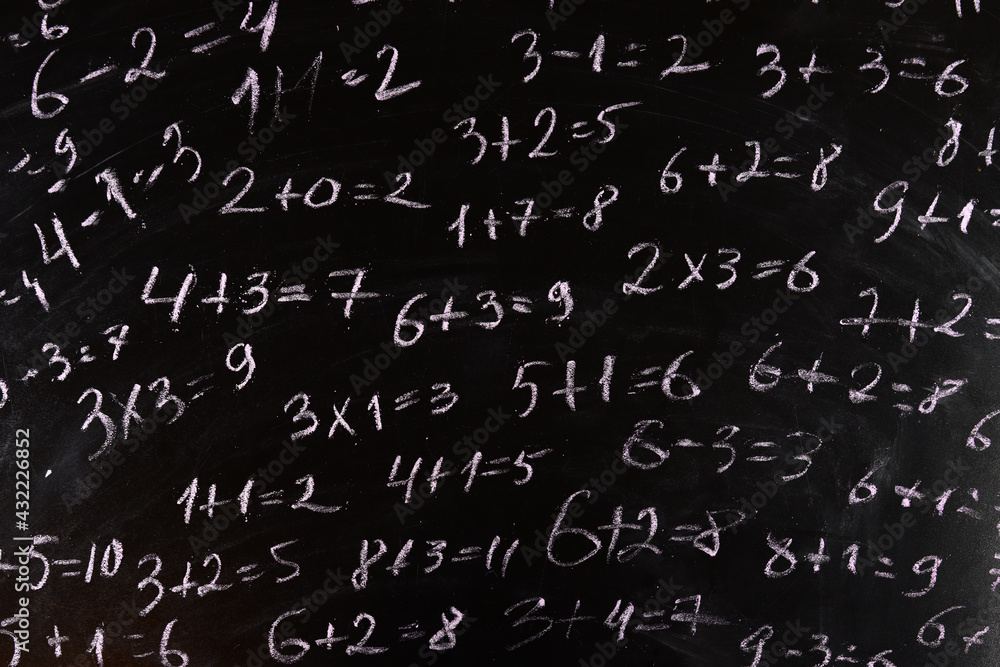 6-2=4
1+1=2
3-1=2
3+3=6
3+2=5
6+2=8
8+
=9
4-1=3
2+0=2
1+7=8
9+1=
4+3=7
6+3=9
2x3=6
7+2=
-3=7
3x3=9
3x1=3
5+1=6
6+2=8
1+1=2
4+1=5
6-3=3
6+1=
+5=10
3+2=5
8+3=11
6+2=8
8+1=9
5+1=6
6+2=8
3+4=7
9-3=6
Adobe Stock | #432226852